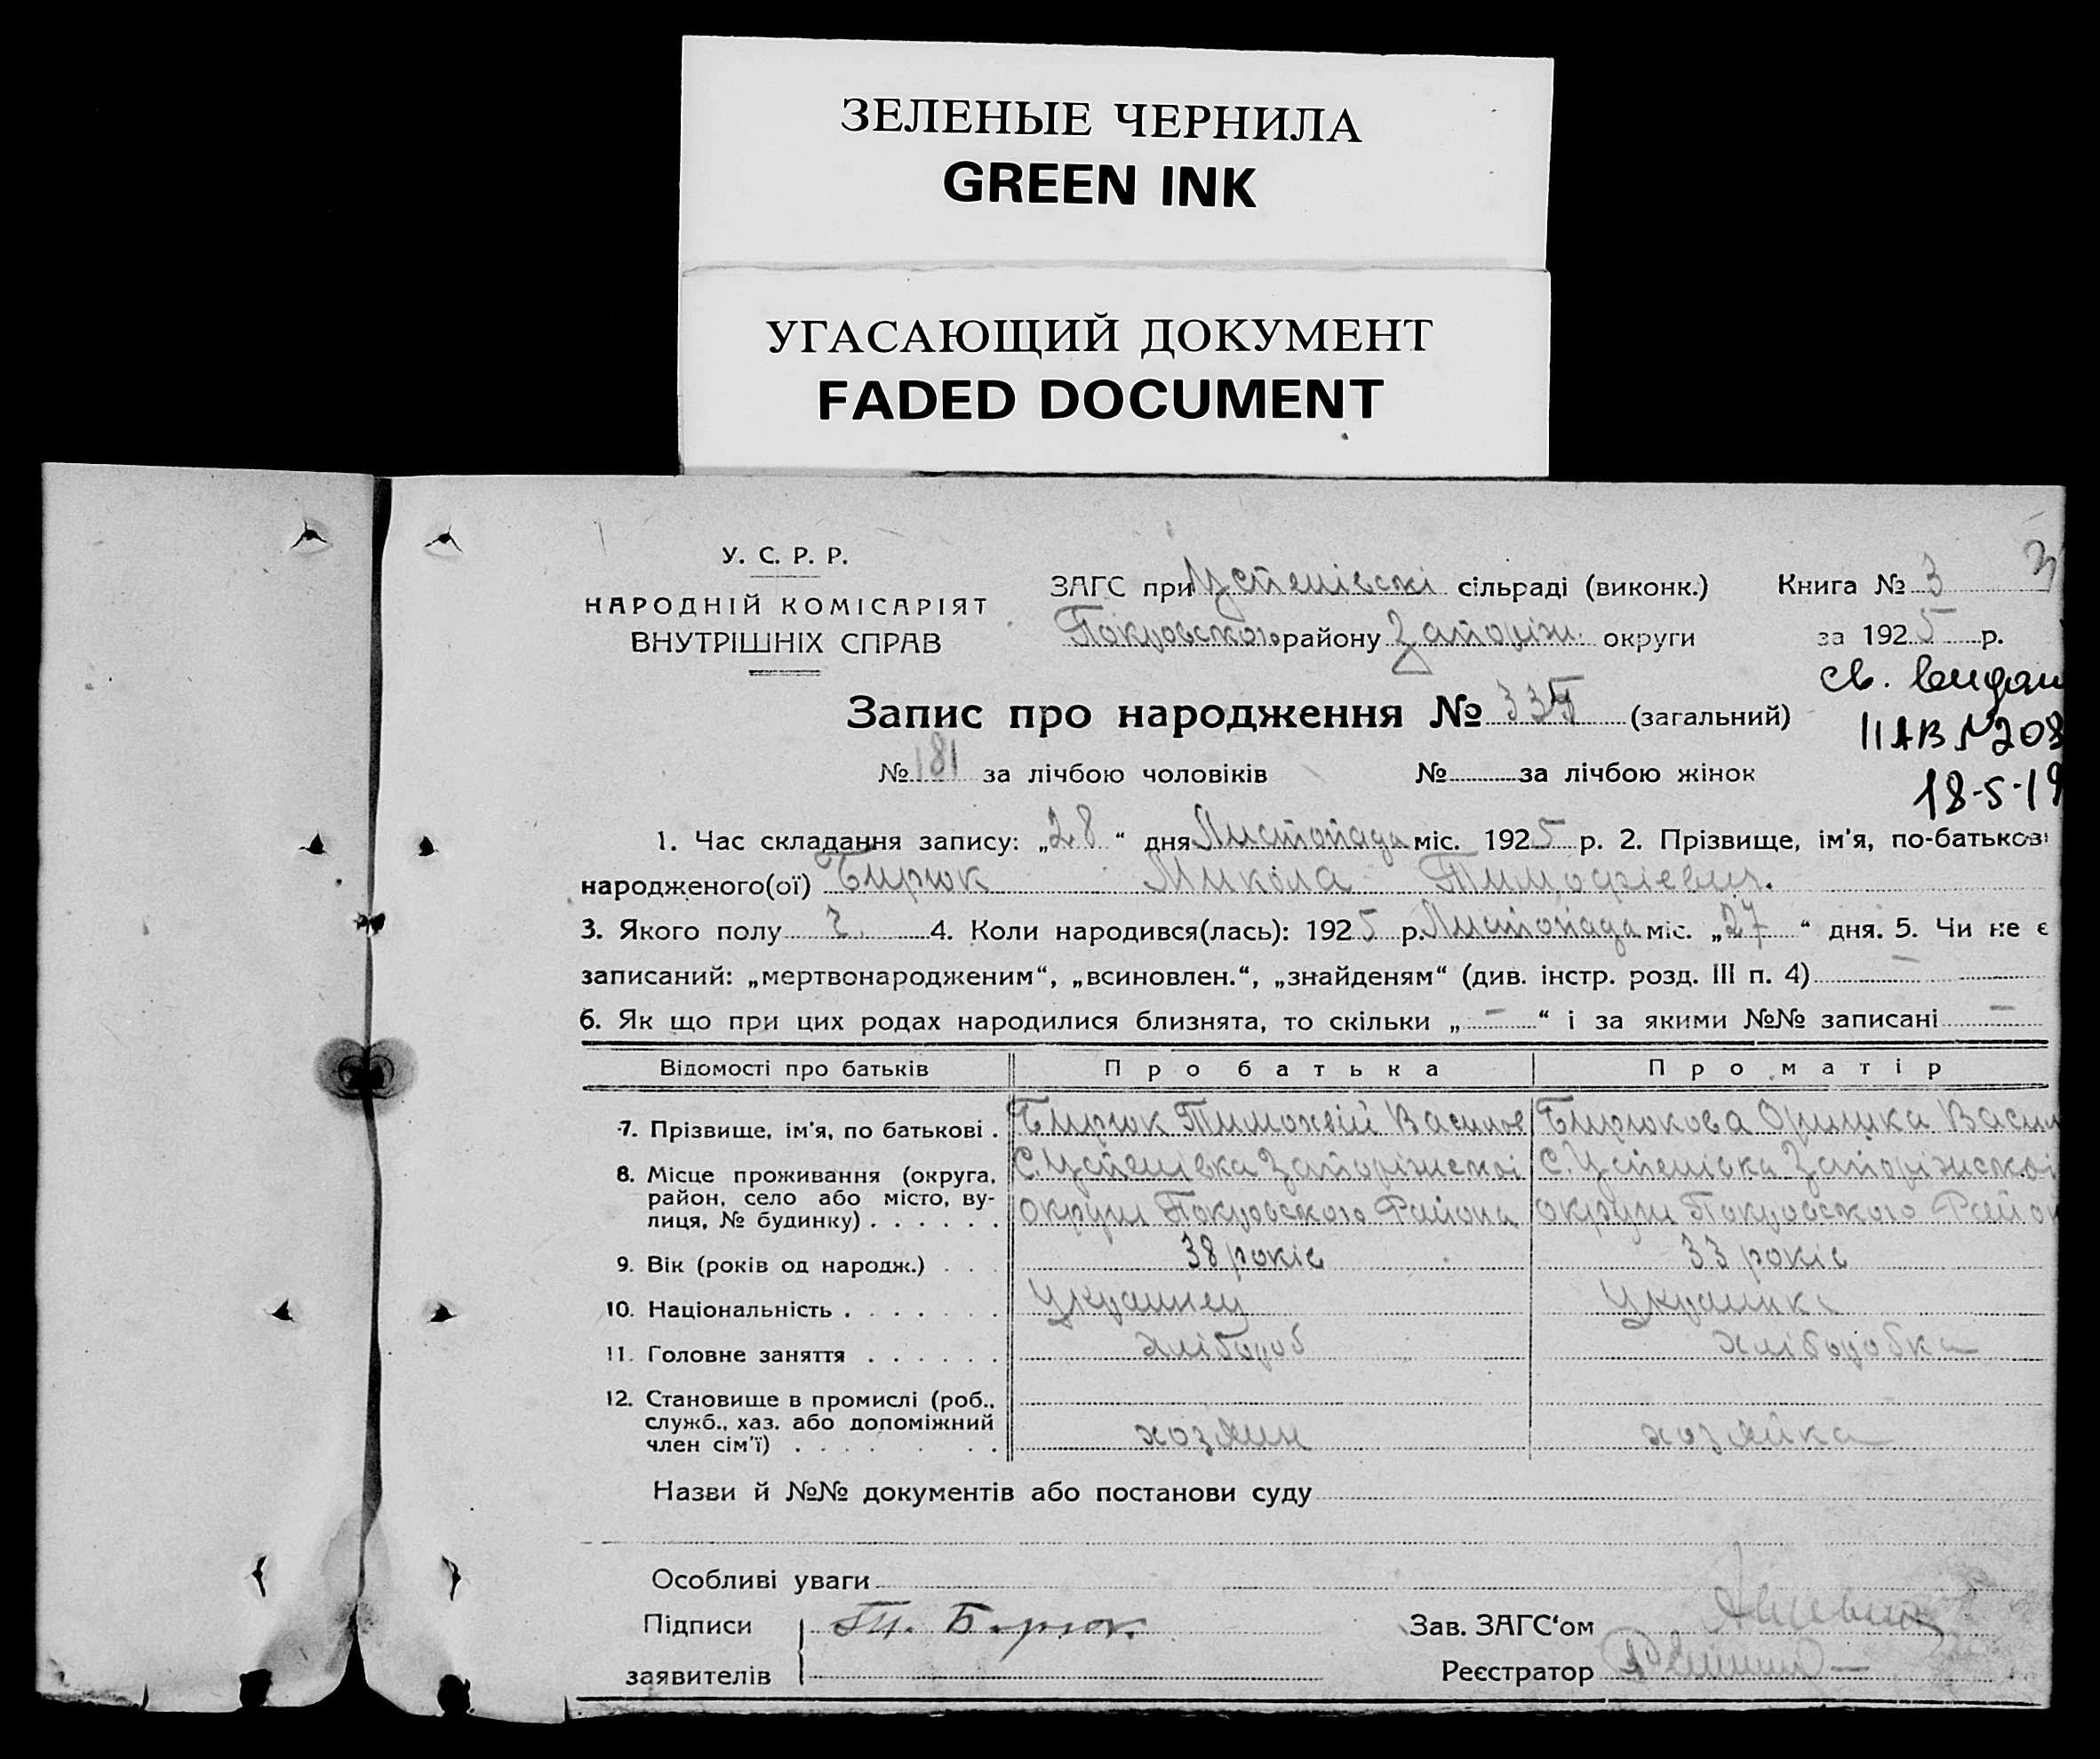 ЗЕЛЕНЫЕ ЧЕРНИЛА
GREEN INK
УГАСАЮЩИЙ ДОКУМЕНТ
FADED DOCUMENT
У. С. Р. Р.
НАРОДНІЙ КОМІСАРІЯТ
ВНУТРІШНІХ СПРАВ
ЗАГС при Успенівскі сільраді (виконк.) Книга № 3 3
Покровского району Запоріж. округи за 1925 р.
св. видан
Запис про народження № 335 (загальний)
II АВ № 208
№ 181 за лічбою чоловіків № за лічбою жінок
18-5-19
1. Час складання запису: „28“ дня Листопада міс. 1925 р. 2. Прізвище, ім'я, по-батькові
народженого(ої) Бирюк Микола Тимофіевич.
3. Якого полу ч. 4. Коли народився(лась): 1925 р. Листопада міс. „27“ дня. 5. Чи не є
записаний: „мертвонародженим“, „всиновлен.“, „знайденям“ (див. інстр. розд. III п. 4) —
6. Як що при цих родах народилися близнята, то скільки „ — “ і за якими №№ записані —
Відомості про батьків Про батька Про матір
7. Прізвище, ім'я, по батькові . Бирюк Тимохвій Васильов Бирюкова Оришка Васил
8. Місце проживання (округа, С. Успенівка Запоріжскоі С. Успенівка Запоріжскоі
район, село або місто, ву-
лиця, № будинку) . . . . . . округи Покровского Района округи Покровского Район
9. Вік (років од народж.) . . . 38 років 33 років
10. Національність . . . . . . . Украинец Украинка
11. Головне заняття . . . . . . хлібороб хліборобка
12. Становище в промислі (роб.,
служб., хаз. або допоміжний
член сім'ї) . . . . . . . хозяин хозяйка
Назви й №№ документів або постанови суду
Особливі уваги
Підписи Ти. Бирюк. Зав. ЗАГС‘ом
заявителів Реєстратор